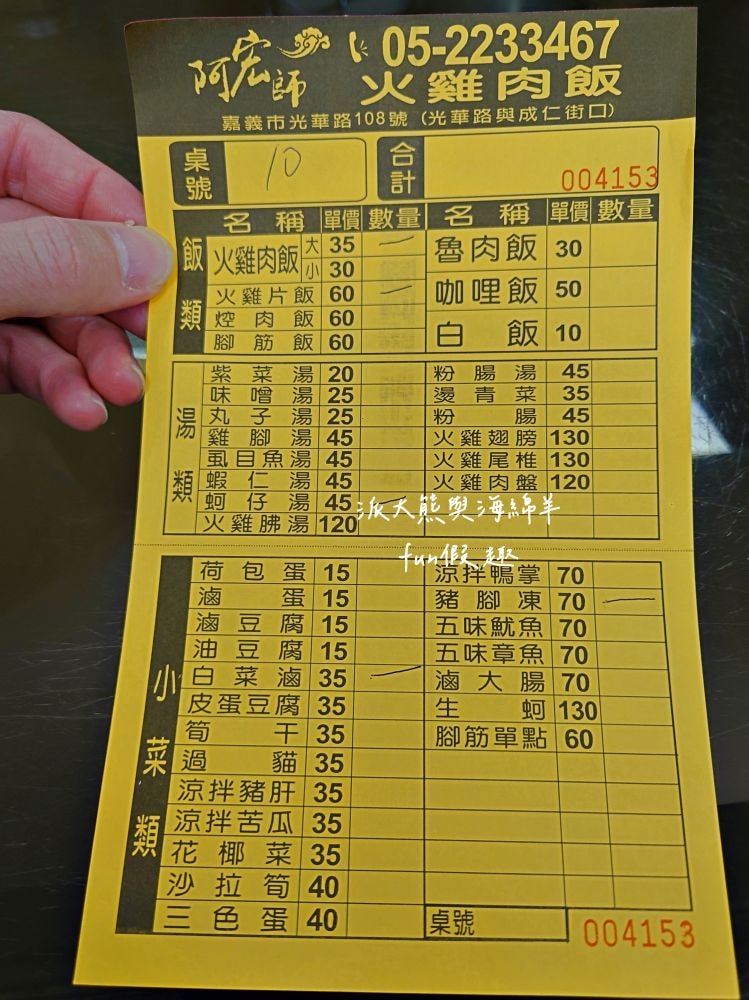 阿宏師 05-2233467
火雞肉飯
嘉義市光華路108號 (光華路與成仁街口)
桌號 10 合計 004153
飯類
名稱 單價 數量 名稱 單價 數量
火雞肉飯 大 35 一 魯肉飯 30
小 30
火雞片飯 60 一 咖哩飯 50
焢肉飯 60 白飯 10
腳筋飯 60
湯類
紫菜湯 20 粉腸湯 45
味噌湯 25 燙青菜 35
丸子湯 25 粉腸 45
雞腳湯 45 火雞翅膀 130
虱目魚湯 45 火雞尾椎 130
蝦仁湯 45 火雞肉盤 120
蚵仔湯 45 一
火雞胇湯 120
派大熊與海綿羊
fun假趣
小菜類
荷包蛋 15 涼拌鴨掌 70
滷蛋 15 豬腳凍 70 一
滷豆腐 15 五味魷魚 70
油豆腐 15 五味章魚 70
白菜滷 35 一 滷大腸 70
皮蛋豆腐 35 生蚵 130
筍干 35 腳筋單點 60
過貓 35
涼拌豬肝 35
涼拌苦瓜 35
花椰菜 35
沙拉筍 40
三色蛋 40 桌號 004153